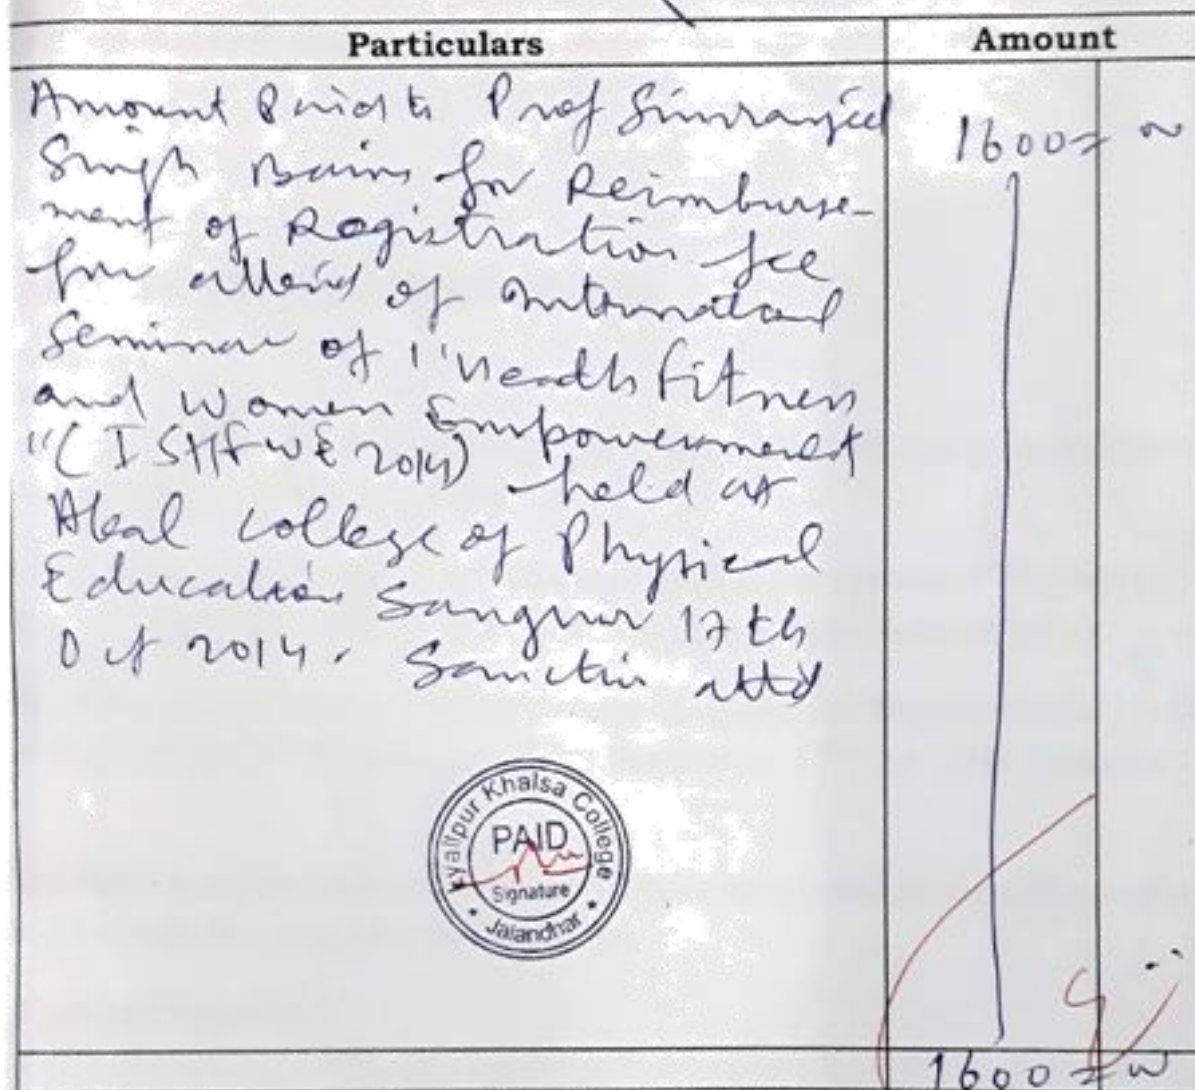 Particulars Amount
Amount Paid to Prof Simranjit 1600=00
Singh Bains for Reimburse-
ment of Registration fee
for attend of International
Seminar of "Health Fitness
and Women Empowerment
"(ISHFWE 2014) held at
Akal College of Physical
Education Sangrur 17th
Oct 2014. Sanction attd
Lyallpur Khalsa College
PAID
Signature
Jalandhar
1600=00